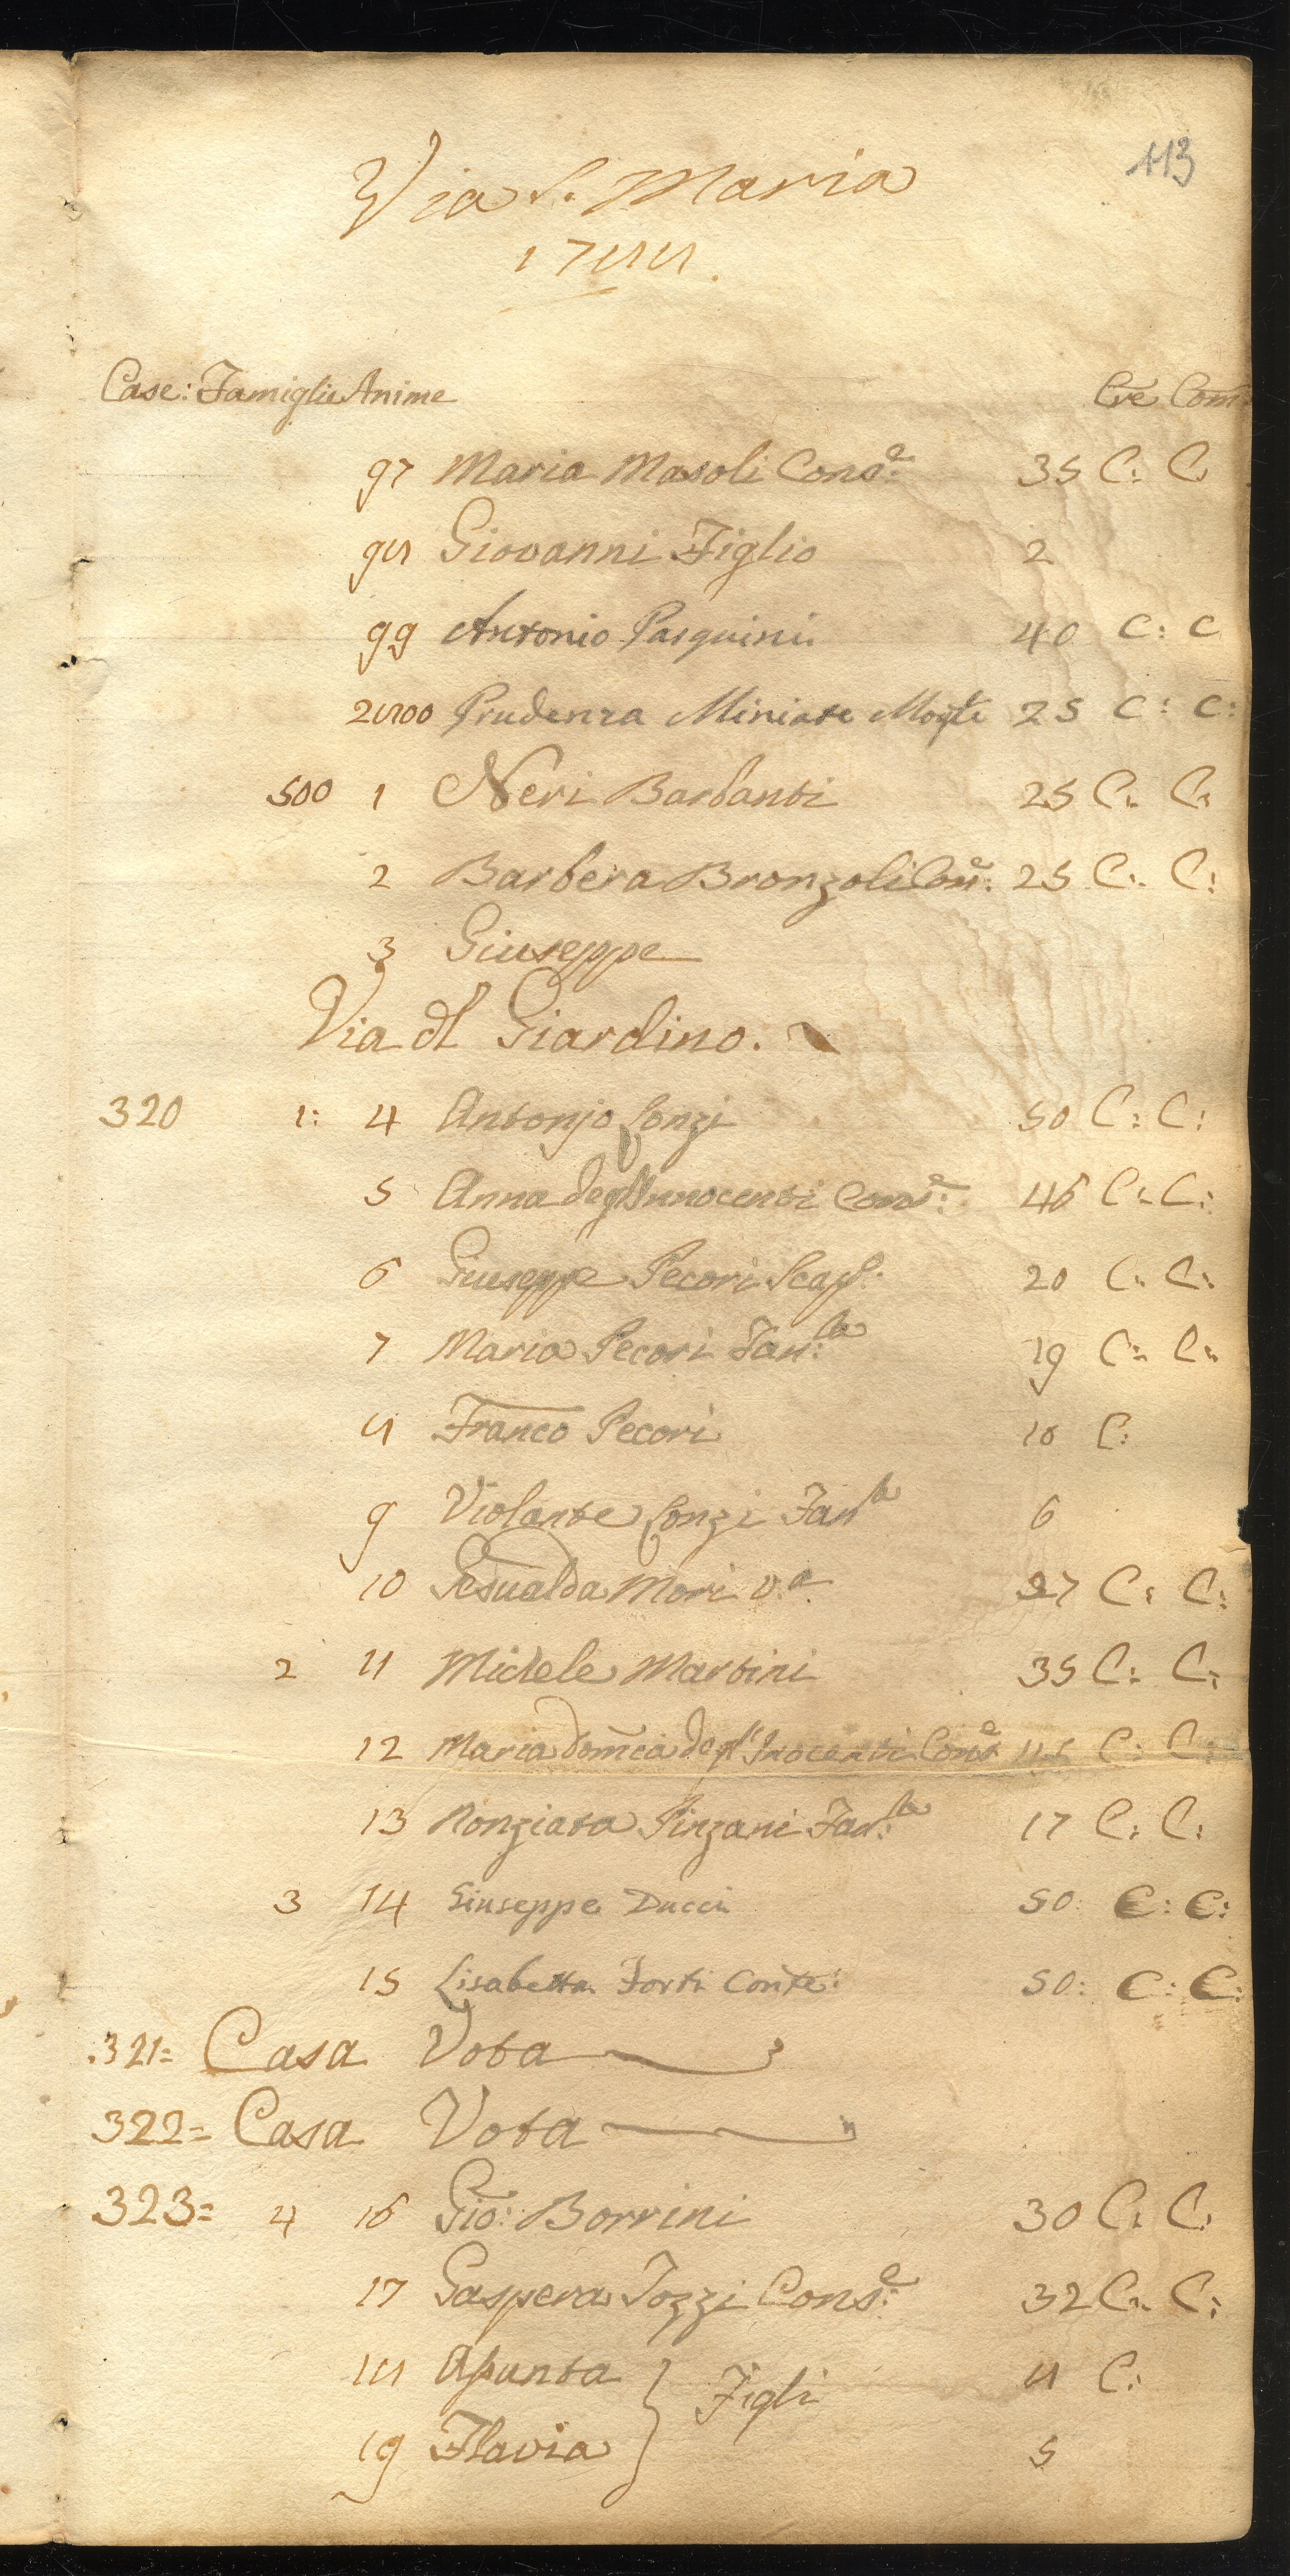 113
Via S. Maria
1788.
Case: Famiglie Anime Cre Com
97 Maria Masoli Cons.e 35 C: C
98 Giovanni Figlio 2
99 Antonio Pasquini 40 C: C
2800 Prudenza Miniati Mogle 25 C: C:
500 1 Neri Barbanti 25 C: C:
2 Barbera Bronzoli Con.e 25 C: C:
3 Giuseppe
Via dl Giardino.
320 1: 4 Antonjo Conzi 50 C: C:
5 Anna degl'Innocenti Cons.e 46 C: C:
6 Giuseppe Pecori Scapl. 20 C: C:
7 Maria Pecori Fan:la 19 C: C:
8 Franco Pecori 10 C:
9 Violante Conzi Fanla 6
10 Gesualda Mori v.a 27 C: C:
2 11 Michele Martini 35 C: C:
12 Maria Domca degl'Inocenti Cons.e C: C:
13 Nonziata Pinzani Fan:la 17 C: C:
3 14 Giuseppe Ducci 50: C: C:
15 Lisabetta Forti Conte: 50: C: C:
321= Casa Vota
322= Casa Vota
323= 4 16 Gio: Borrini 30 C: C:
17 Gaspera Tozzi Cons.e 32 C: C:
18 Assunta } Figli 8 C:
19 Flavia 5